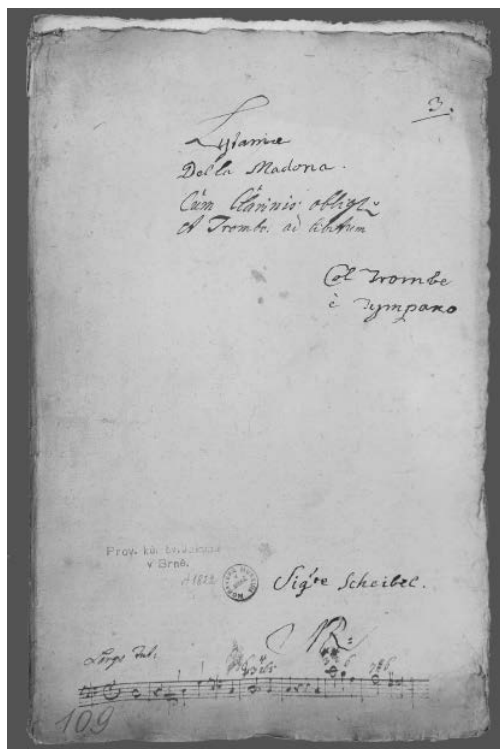 3.
Lytaniæ
Della Madona.
Cum Clarinis obligt:
et Trombe: ad libitum
Col Trombe
è Tympano
Prov. kůr
v Brně.
A 1822
Sigre Scheibel.
Largo Tut:
109